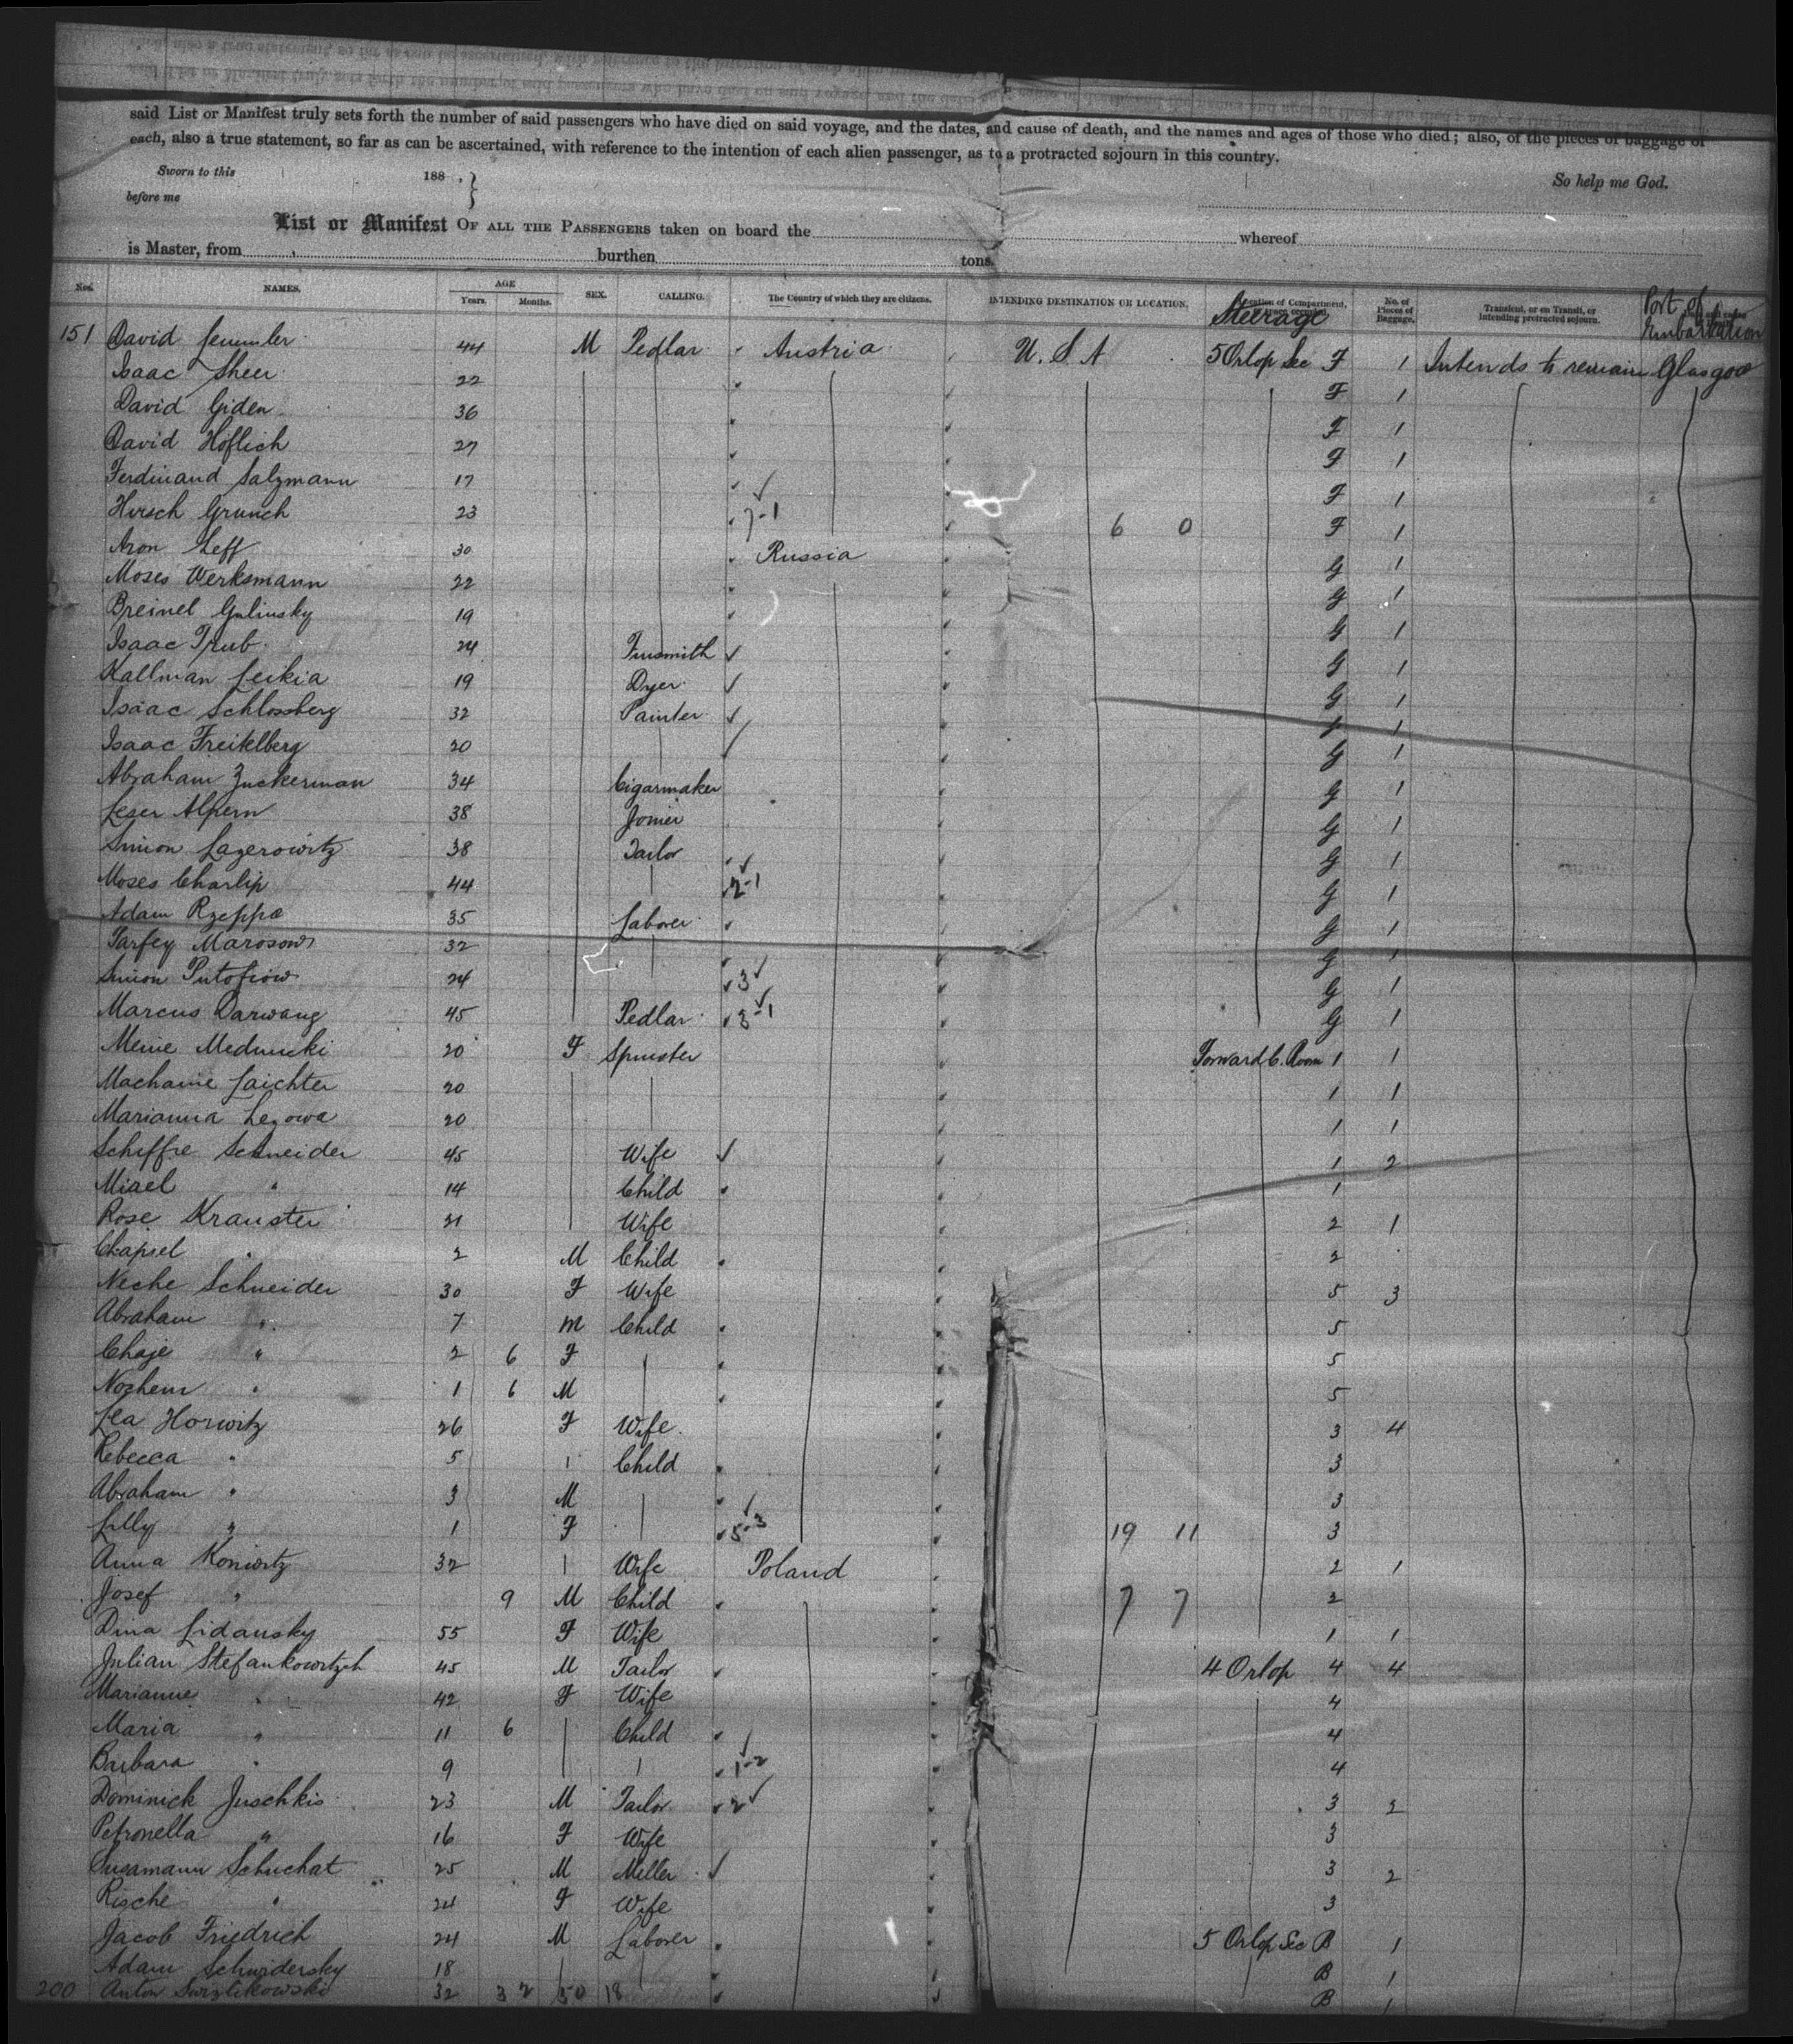 said List or Manifest truly sets forth the number of said passengers who have died on said voyage, and the dates, and cause of death, and the names and ages of those who died; also, of the pieces of baggage of
each, also a true statement, so far as can be ascertained, with reference to the intention of each alien passenger, as to a protracted sojourn in this country.
Sworn to this 188 . So help me God.
before me
List or Manifest OF ALL THE PASSENGERS taken on board the whereof
is Master, from burthen tons.
Nos. NAMES. AGE Years. Months. SEX. CALLING. The Country of which they are citizens. INTENDING DESTINATION OR LOCATION. Steerage No. of Pieces of Baggage. Transient, or on Transit, or intending protracted sojourn. Port of Embarkation
151 David 44 M Pedlar Austria U. S. A 5 Orlop Sec F 1 Intends to remain Glasgow
Isaac Sheer 22 F 1
David Giden 36 F 1
David Höflich 27 F 1
Ferdinand Salzmann 17 F 1
Hirsch Grunch 23 7-1 6 0 F 1
Aron Leff 30 Russia G 1
Moses Werksmann 22 G 1
Breinel Galinsky 19 G 1
Isaac Trub 24 Tinsmith G 1
Kallman Leikia 19 Dyer G 1
Isaac Schlossberg 32 Painter G 1
Isaac Freitelberg 20 G 1
Abraham Zuckerman 34 Cigarmaker G 1
Leser Alpern 38 Joiner G 1
Simon Lazerowitz 38 Tailor G 1
Moses Charlip 44 2-1 G 1
Adam Rzeppa 35 Laborer G 1
Parfey Marosow 32 G 1
Simon Putofiow 24 3 G 1
Marcus Darwang 45 Pedlar 3-1 G 1
Meine 20 F Spinster Forward C. Room 1 1
Machame Laichter 20 1 1
Marianna Lezowa 20 1 1
Schiffre Schneider 45 Wife 1 2
Misel " 14 Child 1
Rose Kranster 21 Wife 2 1
Chapsel " 2 M Child 2
Neche Schneider 30 F Wife 5 3
Abraham " 7 M Child 5
Chaje " 2 6 F 5
Nochem " 1 6 M 5
Lea Horwitz 26 F Wife 3 4
Rebecca " 5 Child 3
Abraham " 3 M 3
Lilly " 1 F 5-3 19 11 3
Anna Koniwitz 32 Wife Poland 2 1
Josef " 9 M Child 7 7 2
Dina Lidansky 55 F Wife 1 1
Julian Stefankowitzch 45 M Tailor 4 Orlop 4 4
Marianne " 42 F Wife 4
Maria " 11 6 Child 4
Barbara " 9 1-2 4
Dominick Juschkis 23 M Tailor 2 3 2
Petronella " 16 F Wife 3
Susamann Schuchat 25 M Miller 3 2
Rische " 24 F Wife 3
Jacob Friedrich 24 M Laborer 5 Orlop Sec B 1
Adam Schwidersky 18 B 1
200 Anton Swiztikowski 32 32 50 18 B 1